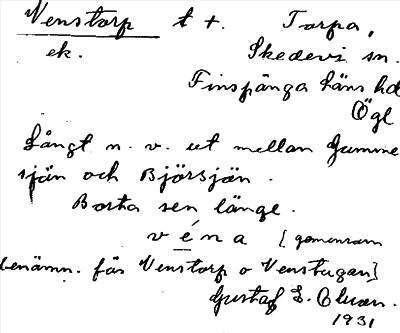 Venstorp t +. Torpa,
ek. Skedevi sn.
Finspånga läns hd
Ögl
Långt n. v. ut mellan Gumme
sjön och Björsjön.
Borta sen länge.
véna [gemensam
benämn. för Venstorp o Venstugan]
Gustaf E. Olson.
1931